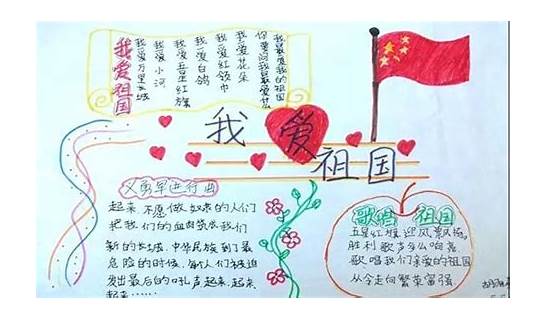 我爱祖国
我爱万里长城
我爱小河
我爱五星红旗
我爱白鸽
我爱红领巾
我爱花朵
你要问我最爱什么
我最爱我的祖国
我爱祖国
义勇军进行曲
起来 不愿做奴隶的人们
把我们的血肉筑成我们
新的长城,中华民族到了最
危险的时候,每个人们被迫
发出最后的吼声起来,起来
起来……
歌唱 祖国
五星红旗迎风飘扬,
胜利歌声多么响亮
歌唱我们亲爱的祖国
从今走向繁荣富强.